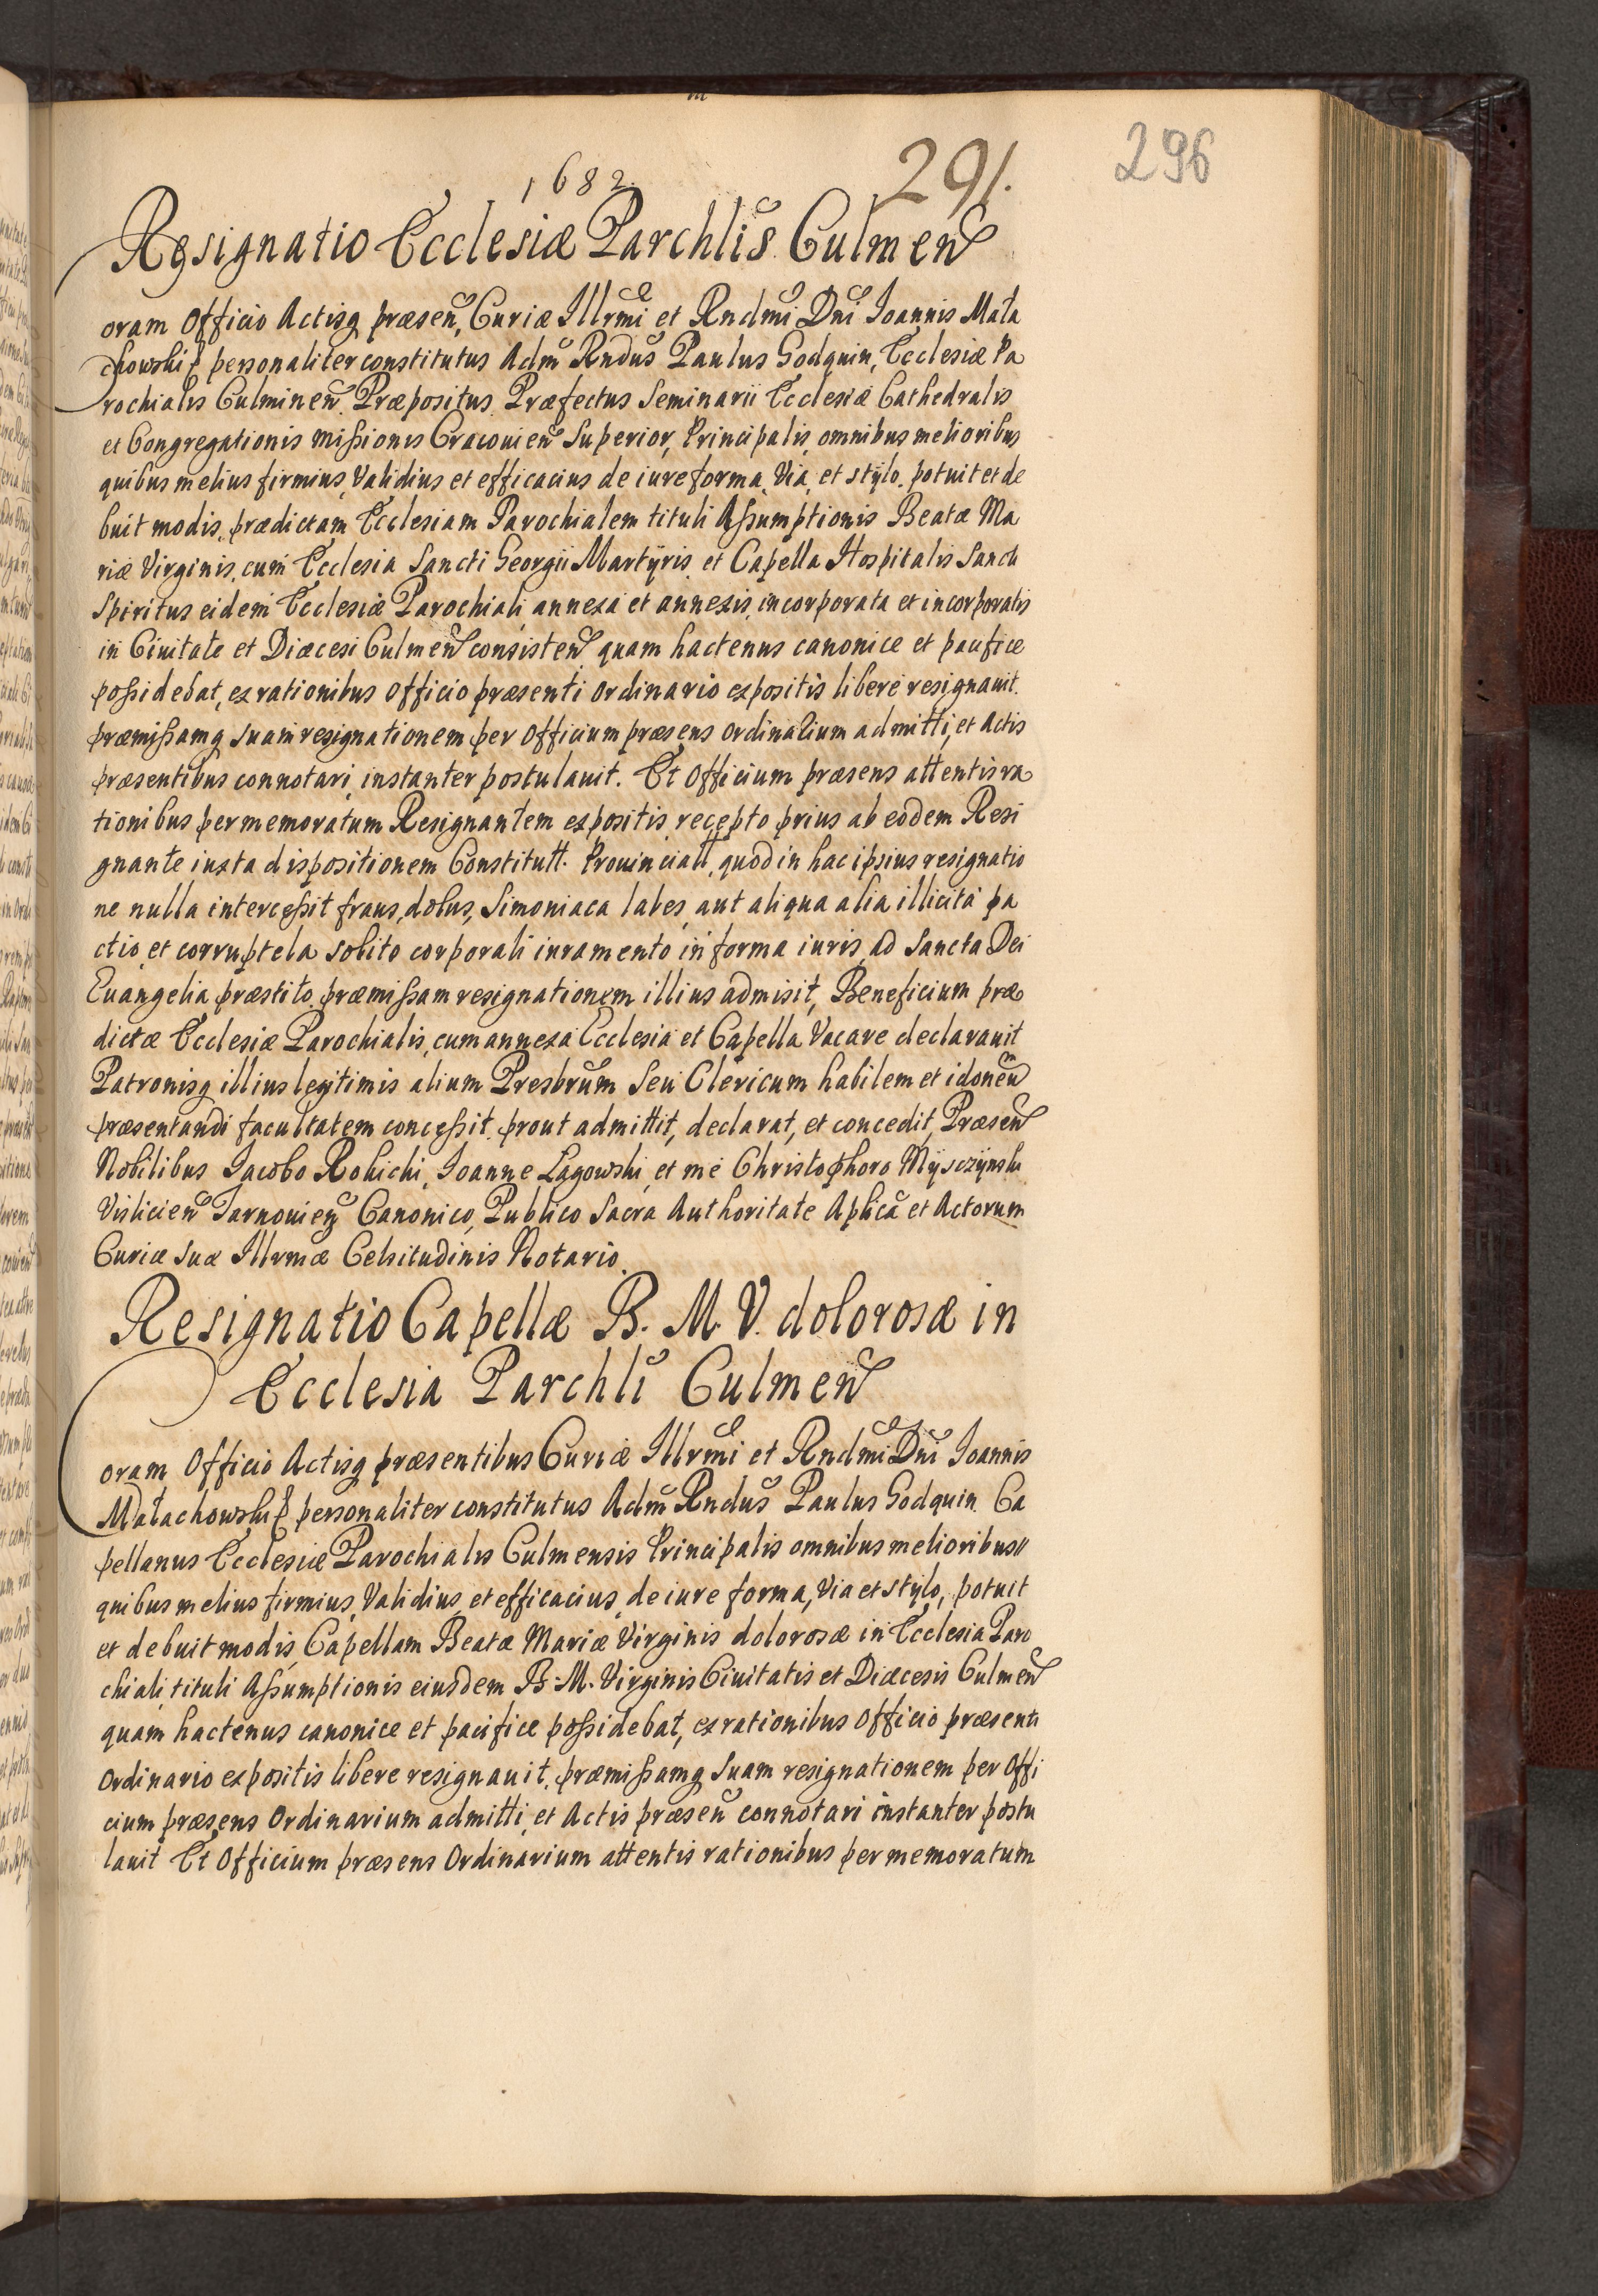 1682.
291.
296
Resignatio Ecclesiæ Parchlis Culmen
Coram Officio Actisq præsen, Curiæ Illrmi et Rndmi Dni Joannis Mała
chowski personaliter constitutus Adm Rndus Paulus Godquin, Ecclesiæ Pa
rochialis Culminen. Præpositus Præfectus Seminarii Ecclesiæ Cathedralis
et Congregationis Missionis Cracouien Superior, Principalis omnibus melioribus
quibus melius firmius, Validius et efficacius de iure forma, Via, et stÿlo. potuit et de
buit modis, prædictam Ecclesiam Parochialem tituli Assumptionis Beatæ Ma
riæ Virginis, cum Ecclesia Sancti Georgii Martÿris et Capella Hospitalis Sancti
Spiritus eidem Ecclesiæ Parochiali annexa et annexis, incorporata et incorporatis
in Ciuitate et Diæcesi Culmen consisten quam hactenus canonice et pacifice
possidebat, ex rationibus Officio præsenti Ordinario expositis libere resignauit.
præmissamq suam resignationem per Officium præsens Ordinarium admitti, et Actis
præsentibus connotari, instanter postulauit. Et Officium præsens attentis ra
tionibus per memoratum Resignantem expositis, recepto prius ab eodem Resi
gnante iuxta dispositionem Constitutt. Prouinciall, quod in hac ipsius resignatio
ne nulla intercessit fraus, dolus, Simoniaca labes, aut aliqua alia illicita pa
ctio, et corruptela solito corporali iuramento in forma iuris, ad Sancta Dei
Euangelia præstito, præmissam resignationem illius admisit, Beneficium præ
dictæ Ecclesiæ Parochialis, cum annexa Ecclesia et Capella Vacare declarauit
Patronisq illius legitimis alium Presbrum seu Clericum habilem et idoneum
præsentandi facultatem concessit, prout admittit, declarat, et concedit, Præsen
Nobilibus Jacobo Rokicki, Joanne Łagowski, et me Christophoro Mÿsczÿnski
Vislicien Tarnouien Canonico, Publico Sacra Authoritate Aplica et Actorum
Curiæ Suæ Illrmæ Celsitudinis Notario.
Resignatio Capellæ B. M. V. dolorosæ in
Ecclesia Parchli Culmen
Coram Officio Actisq præsentibus Curiæ Illrmi et Rndmi Dni Joannis
Małachowski personaliter constitutus Adm Rndus Paulus Godquin Ca
pellanus Ecclesiæ Parochialis Culmensis Principalis omnibus melioribus
quibus melius firmius, Validius et efficacius, de iure forma, Via et stÿlo, potuit
et debuit modis, Capellam Beatæ Mariæ Virginis dolorosæ in Ecclesia Paro
chiali, tituli Assumptionis eiusdem B. M. Virginis Ciuitatis et Diæcesis Culmen
quam hactenus canonice et pacifice possidebat, ex rationibus Officio præsenti
Ordinario expositis libere resignauit, præmissamq suam resignationem per Offi
cium præsens Ordinarium admitti, et Actis præsen connotari instanter postu
lauit Et Officium præsens Ordinarium attentis rationibus per memoratum